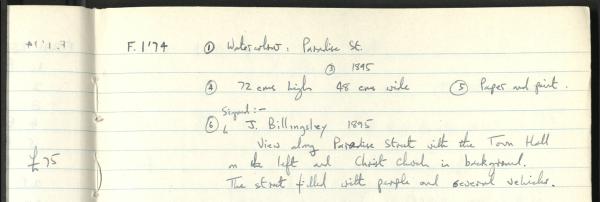 F. 1'74 ① Watercolour: Paradise St.
③ 1895
④ 72 cms high 48 cms wide ⑤ Paper and paint.
Signed:-
⑥ J. Billingsley 1895
View along Paradise Street with the Town Hall
£75 on the left and Christ Church in background.
The street filled with people and several vehicles.